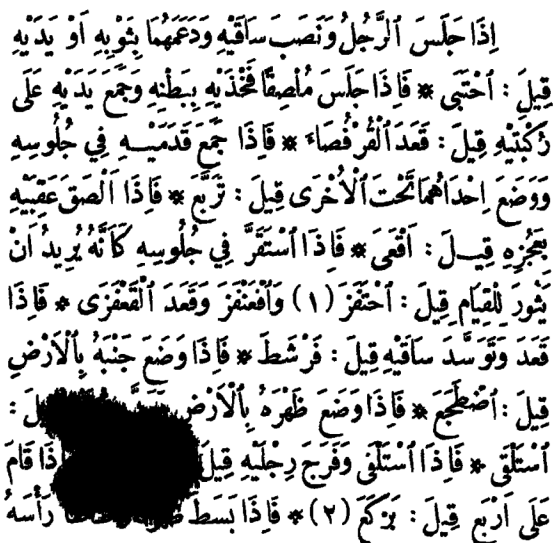 إِذَا جَلَسَ ٱلرَّجُلُ وَنَصَبَ سَاقَيْهِ وَدَعَمَهُمَا بِثَوْبِهِ أَوْ يَدَيْهِ
قِيلَ : ٱحْتَبَى * فَإِذَا جَلَسَ مُلْصِقًا فَخْذَيْهِ بِبَطْنِهِ وَجَمَعَ يَدَيْهِ عَلَى
رُكْبَتَيْهِ قِيلَ : قَعَدَ ٱلْقُرْفُصَاءَ * فَإِذَا جَمَعَ قَدَمَيْهِ فِي جُلُوسِهِ
وَوَضَعَ إِحْدَاهُمَا تَحْتَ ٱلْأُخْرَى قِيلَ : تَرَبَّعَ * فَإِذَا أَلْصَقَ عَقِبَيْهِ
بِعَجُزِهِ قِيلَ : أَقْعَى * فَإِذَا ٱسْتَقَرَّ فِي جُلُوسِهِ كَأَنَّهُ يُرِيدُ أَنْ
يَثُورَ لِلْقِيَامِ قِيلَ : ٱحْتَفَزَ (١) وَٱقْعَنْفَزَ وَقَعَدَ ٱلْقَعْفَزَى * فَإِذَا
قَعَدَ وَتَوَسَّدَ سَاقَيْهِ قِيلَ : فَرْشَطَ * فَإِذَا وَضَعَ جَنْبَهُ بِٱلْأَرْضِ
قِيلَ : ٱضْطَجَعَ * فَإِذَا وَضَعَ ظَهْرَهُ بِٱلْأَرْضِ :
ٱسْتَلْقَى * فَإِذَا ٱسْتَلْقَى وَفَرَجَ رِجْلَيْهِ قِيلَ قَامَ
عَلَى أَرْبَعٍ قِيلَ : بَرْكَعَ (٢) * فَإِذَا بَسَطَ رَأْسَهُ